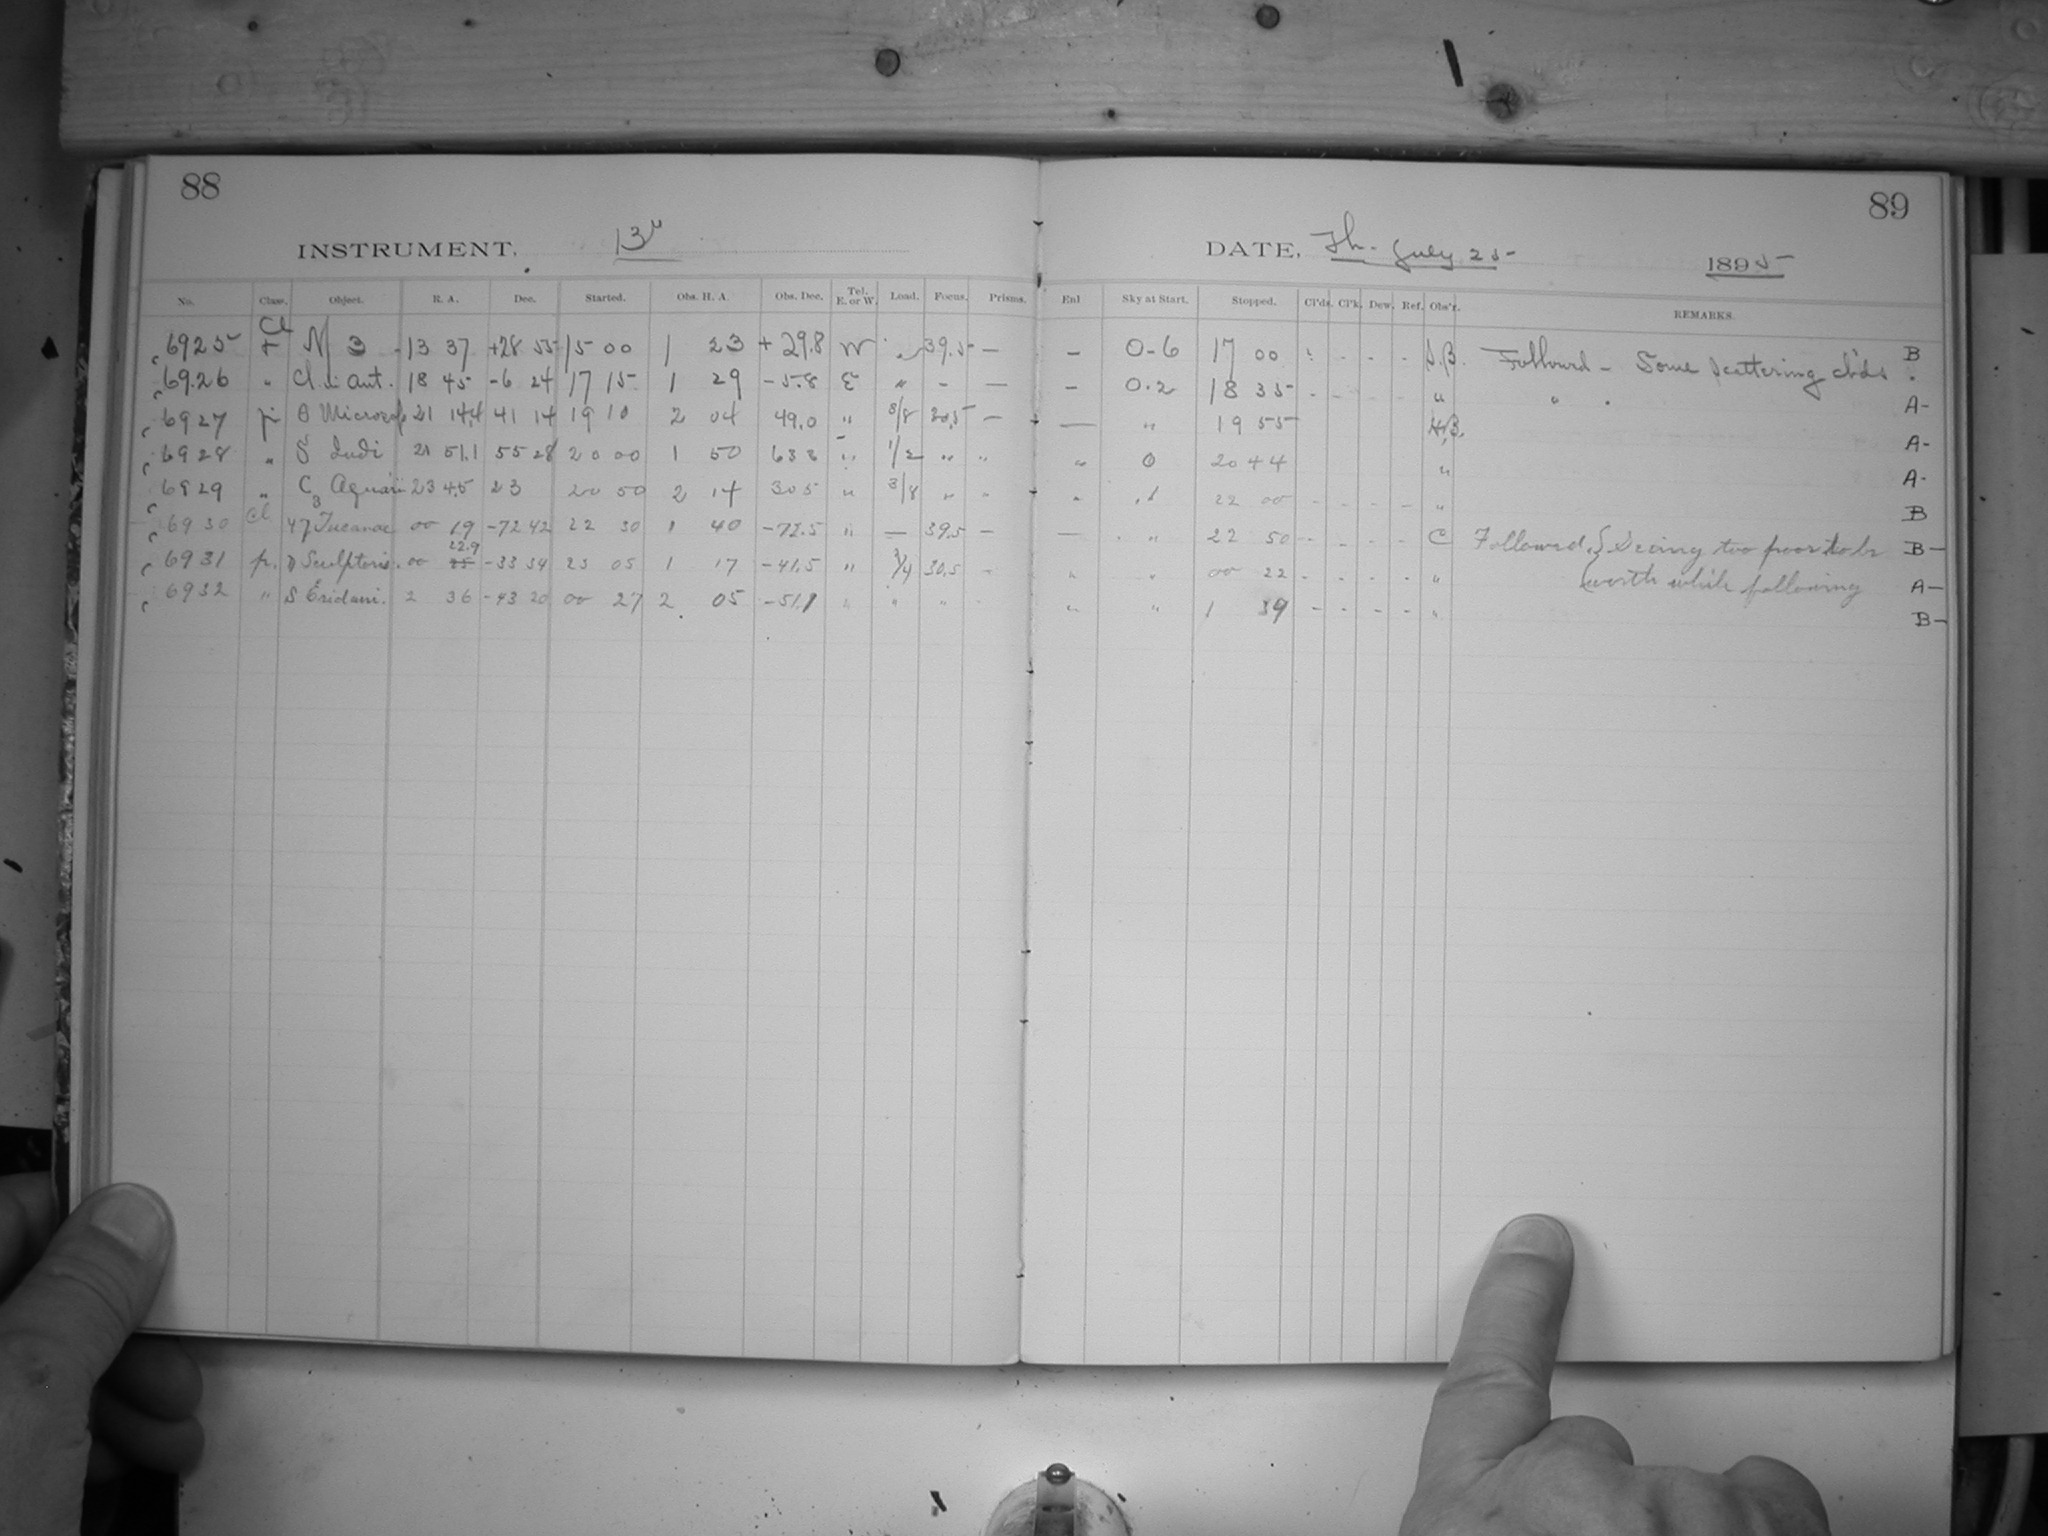 88
INSTRUMENT. 13"
No. Class. Object. R. A. Dec. Started. Obs. H. A. Obs. Dec. Tel. E. or W. Load. Focus. Prisms.
6925 Cl M 3 13 37 +28 55 15 00 1 23 +29.8 W 39.5 —
6926 " Cl. in Ant. 18 45 -6 24 17 15 1 29 -5.8 E " - —
6927 θ 21 14.4 41 14 19 10 2 04 49.0 " 3/8 30.5 —
6928 " Indi 21 51.1 55 28 20 00 1 50 " 1/2 " "
6929 " Aquarii 23 45 23 20 50 2 14 30 5 " 3/8 " "
6930 Cl 47 Tucanae 00 19 -72 42 22 30 1 40 -72.5 " — 39.5 —
6931 p. Sculptoris 00 22.9 -33 34 23 05 1 17 -41.5 " 3/4 30.5 -
6932 " S Eridani. 2 36 -43 20 00 27 2 05 -51.1 " " "
89
DATE, Th. July 25 1895
Enl Sky at Start. Stopped. Cl'ds. Cl'k. Dew. Ref. Obs'r. REMARKS.
- 0-6 17 00 - - - S.B. Followed - Some scattering cl'ds B
- 0.2 18 35 - - - - " " . A-
— " 19 55 A-
" 0 20 44 " A-
" .1 22 00 - - - - " B
— " 22 50 - - - - C Followed. { Seeing too poor to be B-
" " 00 22 - - - - " { worth while following A-
" " 1 39 - - - - " B-